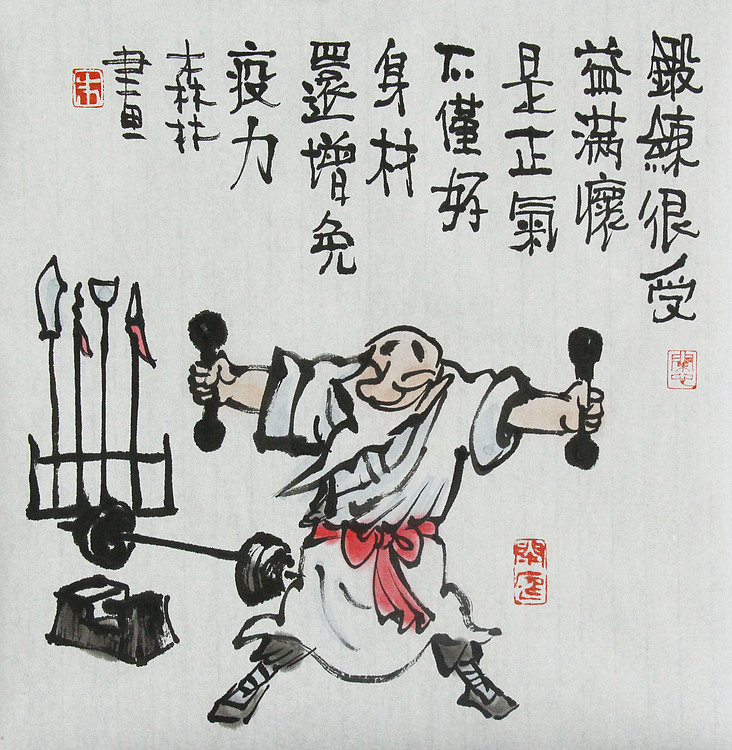 鍛練很受
益滿懷
是正氣
不僅好
身材
還增免
疫力
森林
畫
朱
閑庭